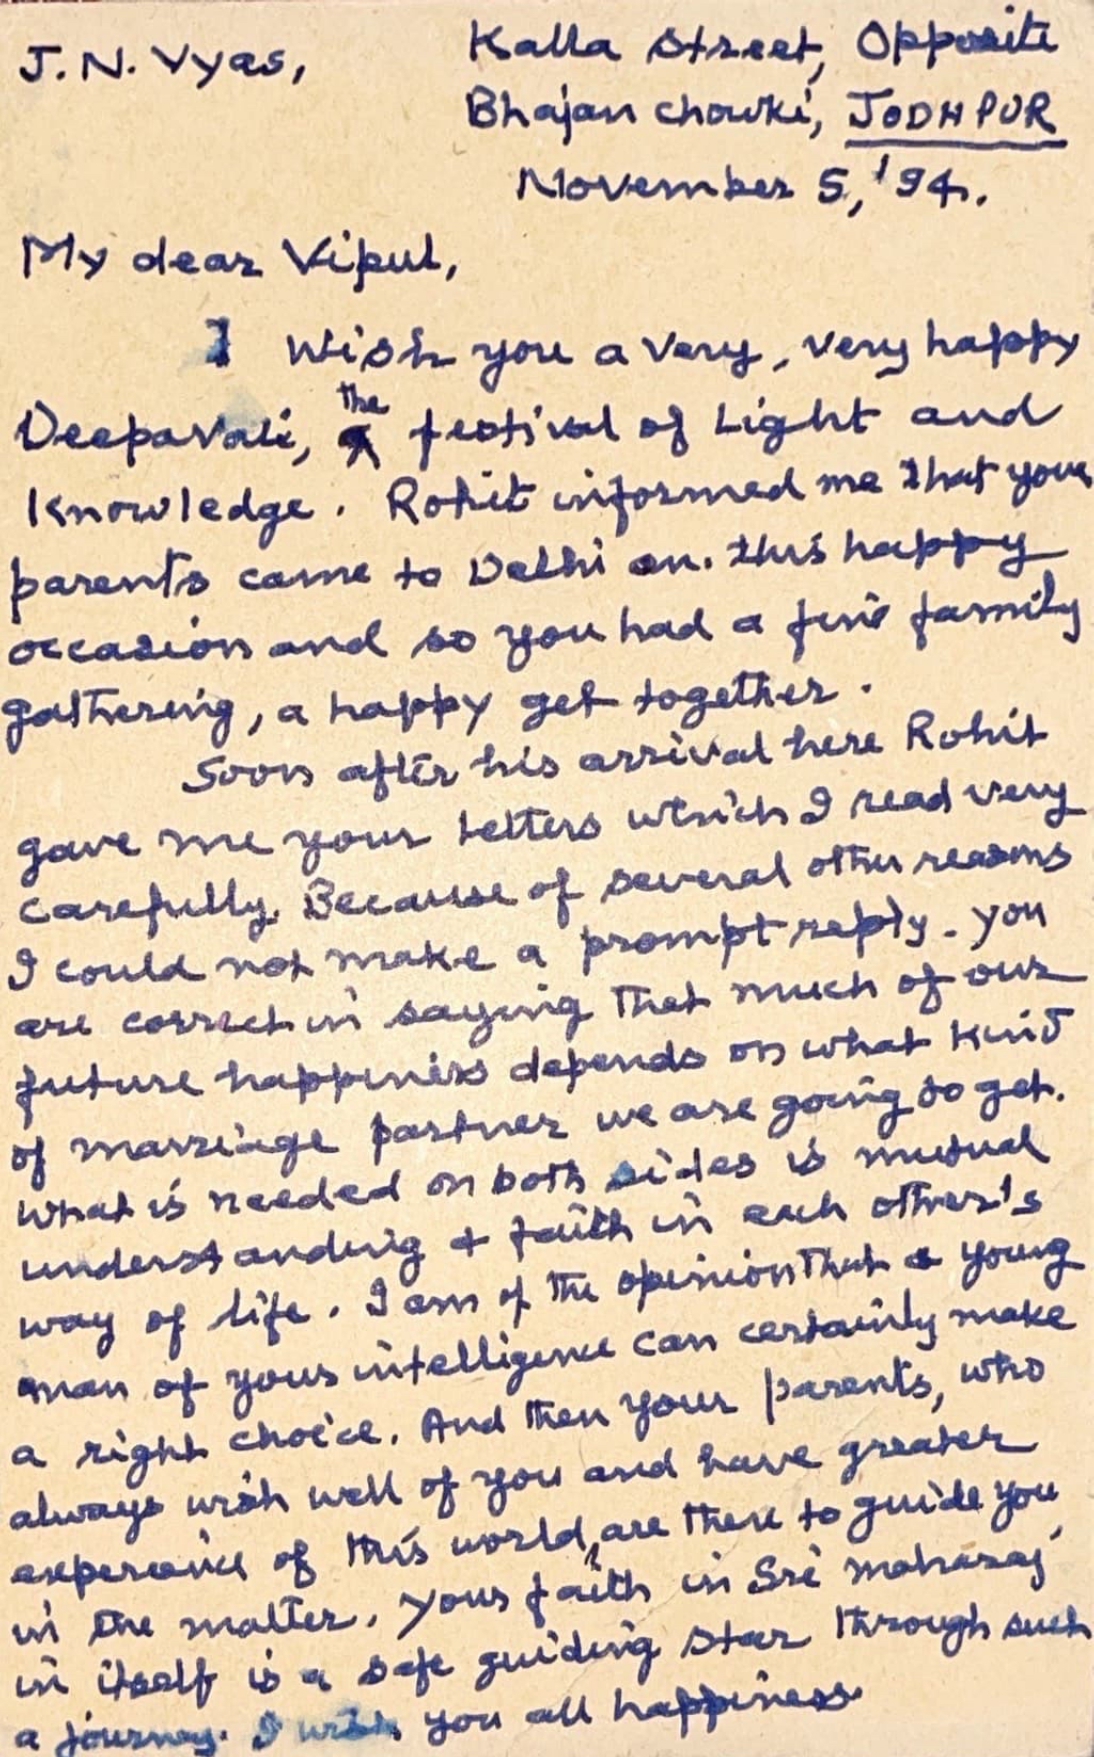 J.N. Vyas,
Kalla Street, Opposite
Bhajan chowki, JODHPUR
November 5, '94.
My dear Vipul,
I wish you a very, very happy
Deepavali, the festival of Light and
Knowledge. Rohit informed me that your
parents came to Delhi on this happy
occasion and so you had a fine family
gathering, a happy get together.
Soon after his arrival here Rohit
gave me your letters which I read very
carefully. Because of several other reasons
I could not make a prompt reply. You
are correct in saying that much of our
future happiness depends on what kind
of marriage partner we are going to get.
What is needed on both sides is mutual
understanding & faith in each other's
way of life. I am of the opinion that a young
man of your intelligence can certainly make
a right choice. And then your parents, who
always wish well of you and have greater
experience of this world, are there to guide you
in the matter. Your faith in Sri Maharaj
in itself is a safe guiding star through such
a journey. I wish you all happiness